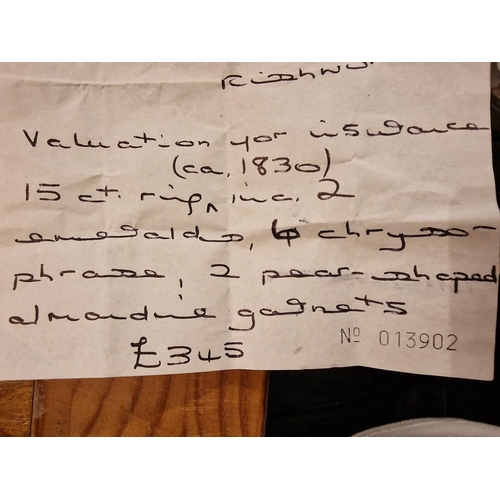 Valuation for insurance
(ca. 1830)
15 ct. ring, inc. 2
emeralds, 4 chryso-
phrase, 2 pear-shaped
almandine garnets
£345
Nº 013902